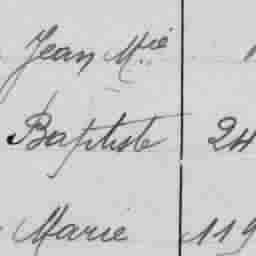 Jean M.ie
Baptiste 24
Marie 119